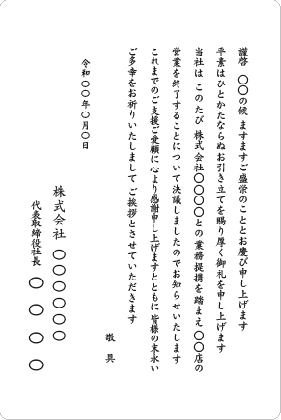 謹啓 〇〇の候 ますますご盛栄のこととお慶び申し上げます
平素はひとかたならぬお引き立てを賜り厚く御礼を申し上げます
当社は このたび 株式会社〇〇〇〇との業務提携を踏まえ〇〇店の
営業を終了することについて決議しましたのでお知らせいたします
これまでのご支援ご愛顧に心より感謝申し上げますとともに 皆様の末永い
ご多幸をお祈りいたしまして ご挨拶とさせていただきます
敬具
令和〇〇年〇月〇日
株式会社 〇〇〇〇〇〇
代表取締役社長 〇〇〇〇